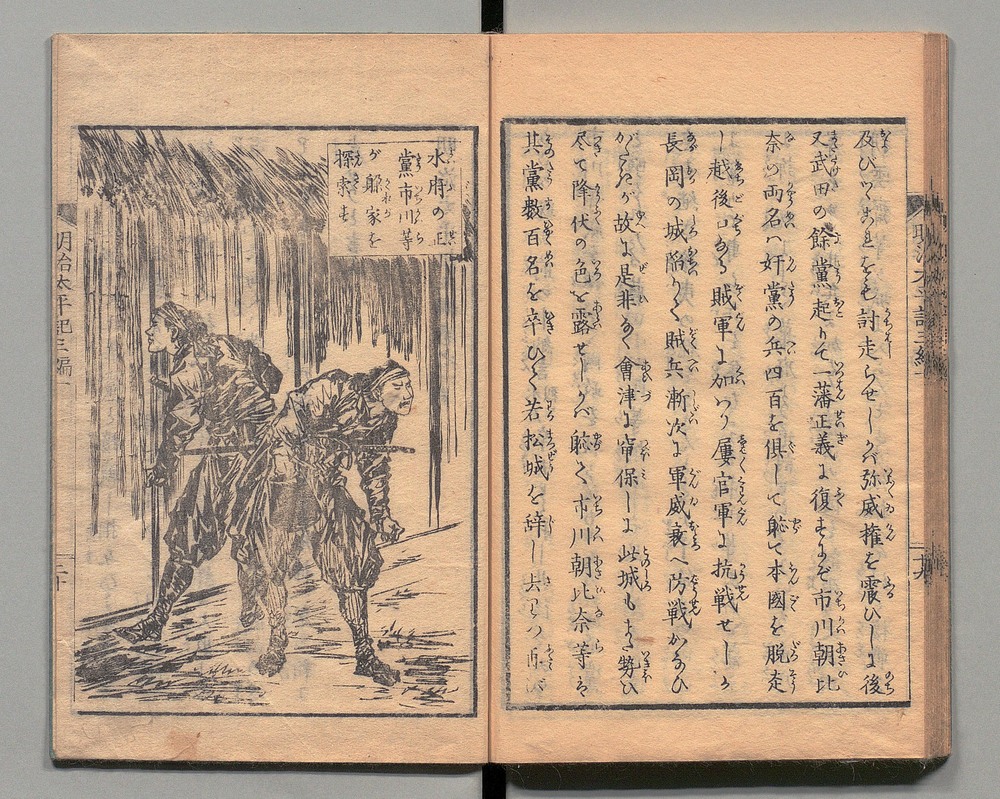 及びつゝ是をも討走らせしかバ弥威権を震ひしに後
又武田の餘黨起りて一藩正義に復すにぞ市川朝比
奈の両名ハ奸黨の兵四百を倶して恥て本國を脱走
し越後口なる賊軍に加ハり屡官軍に抗戦せしが
長岡の城陥りて賊兵漸次に軍威衰へ防戦かなひ
がたきが故に是非なく會津に帘保しに此城もまた勢ひ
尽て降伏の色を露せしかバ恥て市川朝比奈等ハ
其黨数百名を卒ひて若松城を辞し去り
水府の正
黨市川等
が躲家を
探索す
明治太平記三編一
二十